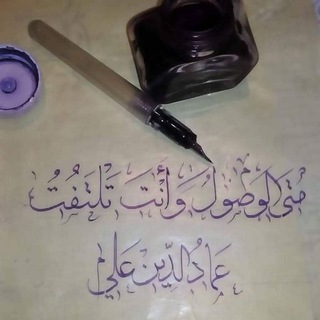 مَتَى الوُصُولُ وَأَنْتَ تَلْتَفِتُ
عِمَادُ الدِّيْن عَلِي